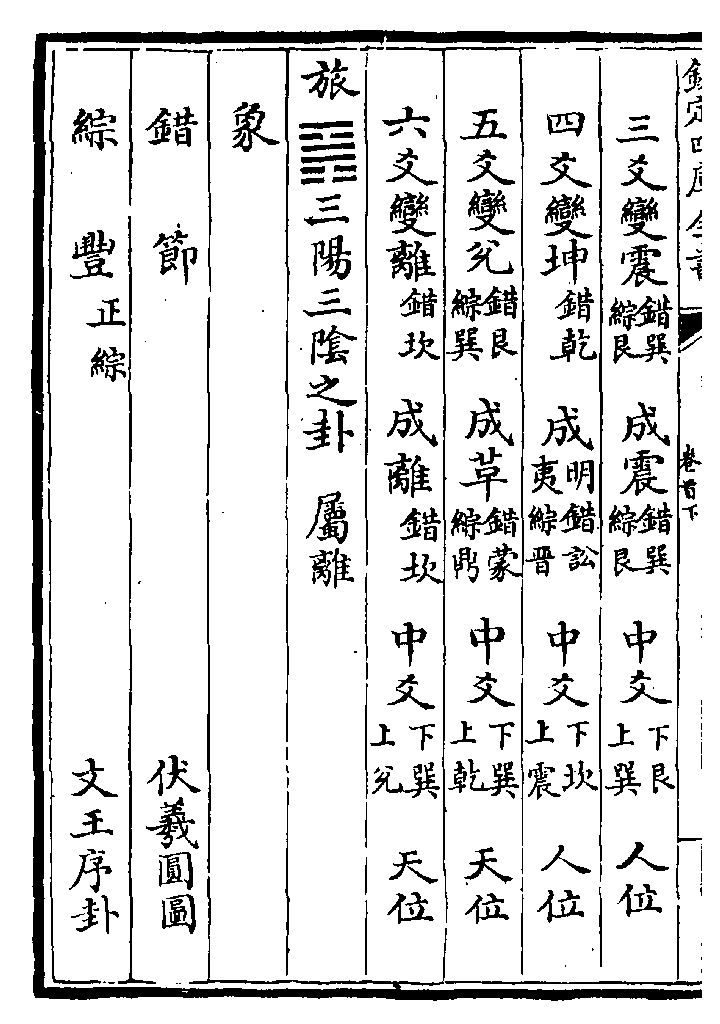 欽定四庫全書
卷首下
三爻變震錯巽綜艮 成震錯巽綜艮 中爻下艮上巽 人位
四爻變坤錯乾 成明夷錯訟綜晉 中爻下坎上震 人位
五爻變兊錯艮綜巽 成革錯蒙綜鼎 中爻下巽上乾 天位
六爻變離錯坎 成離錯坎 中爻下巽上兊 天位
旅䷷三陽三陰之卦 屬離
象
錯 節 伏羲圓圖
綜 豐正綜 文王序卦